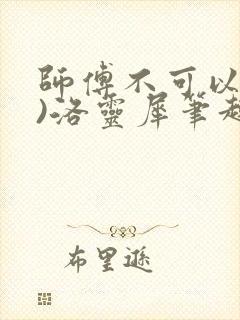 師傅不可以
)洛靈犀筆趣
布里遜